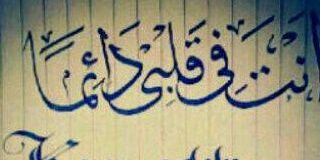 انتَ فِي قَلبي دَائِمًا